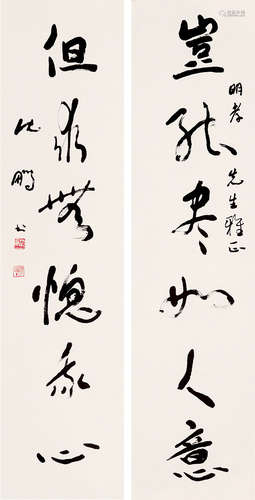 豈能盡如人意
明孝先生雅正
但求無愧我心
沈鵬書